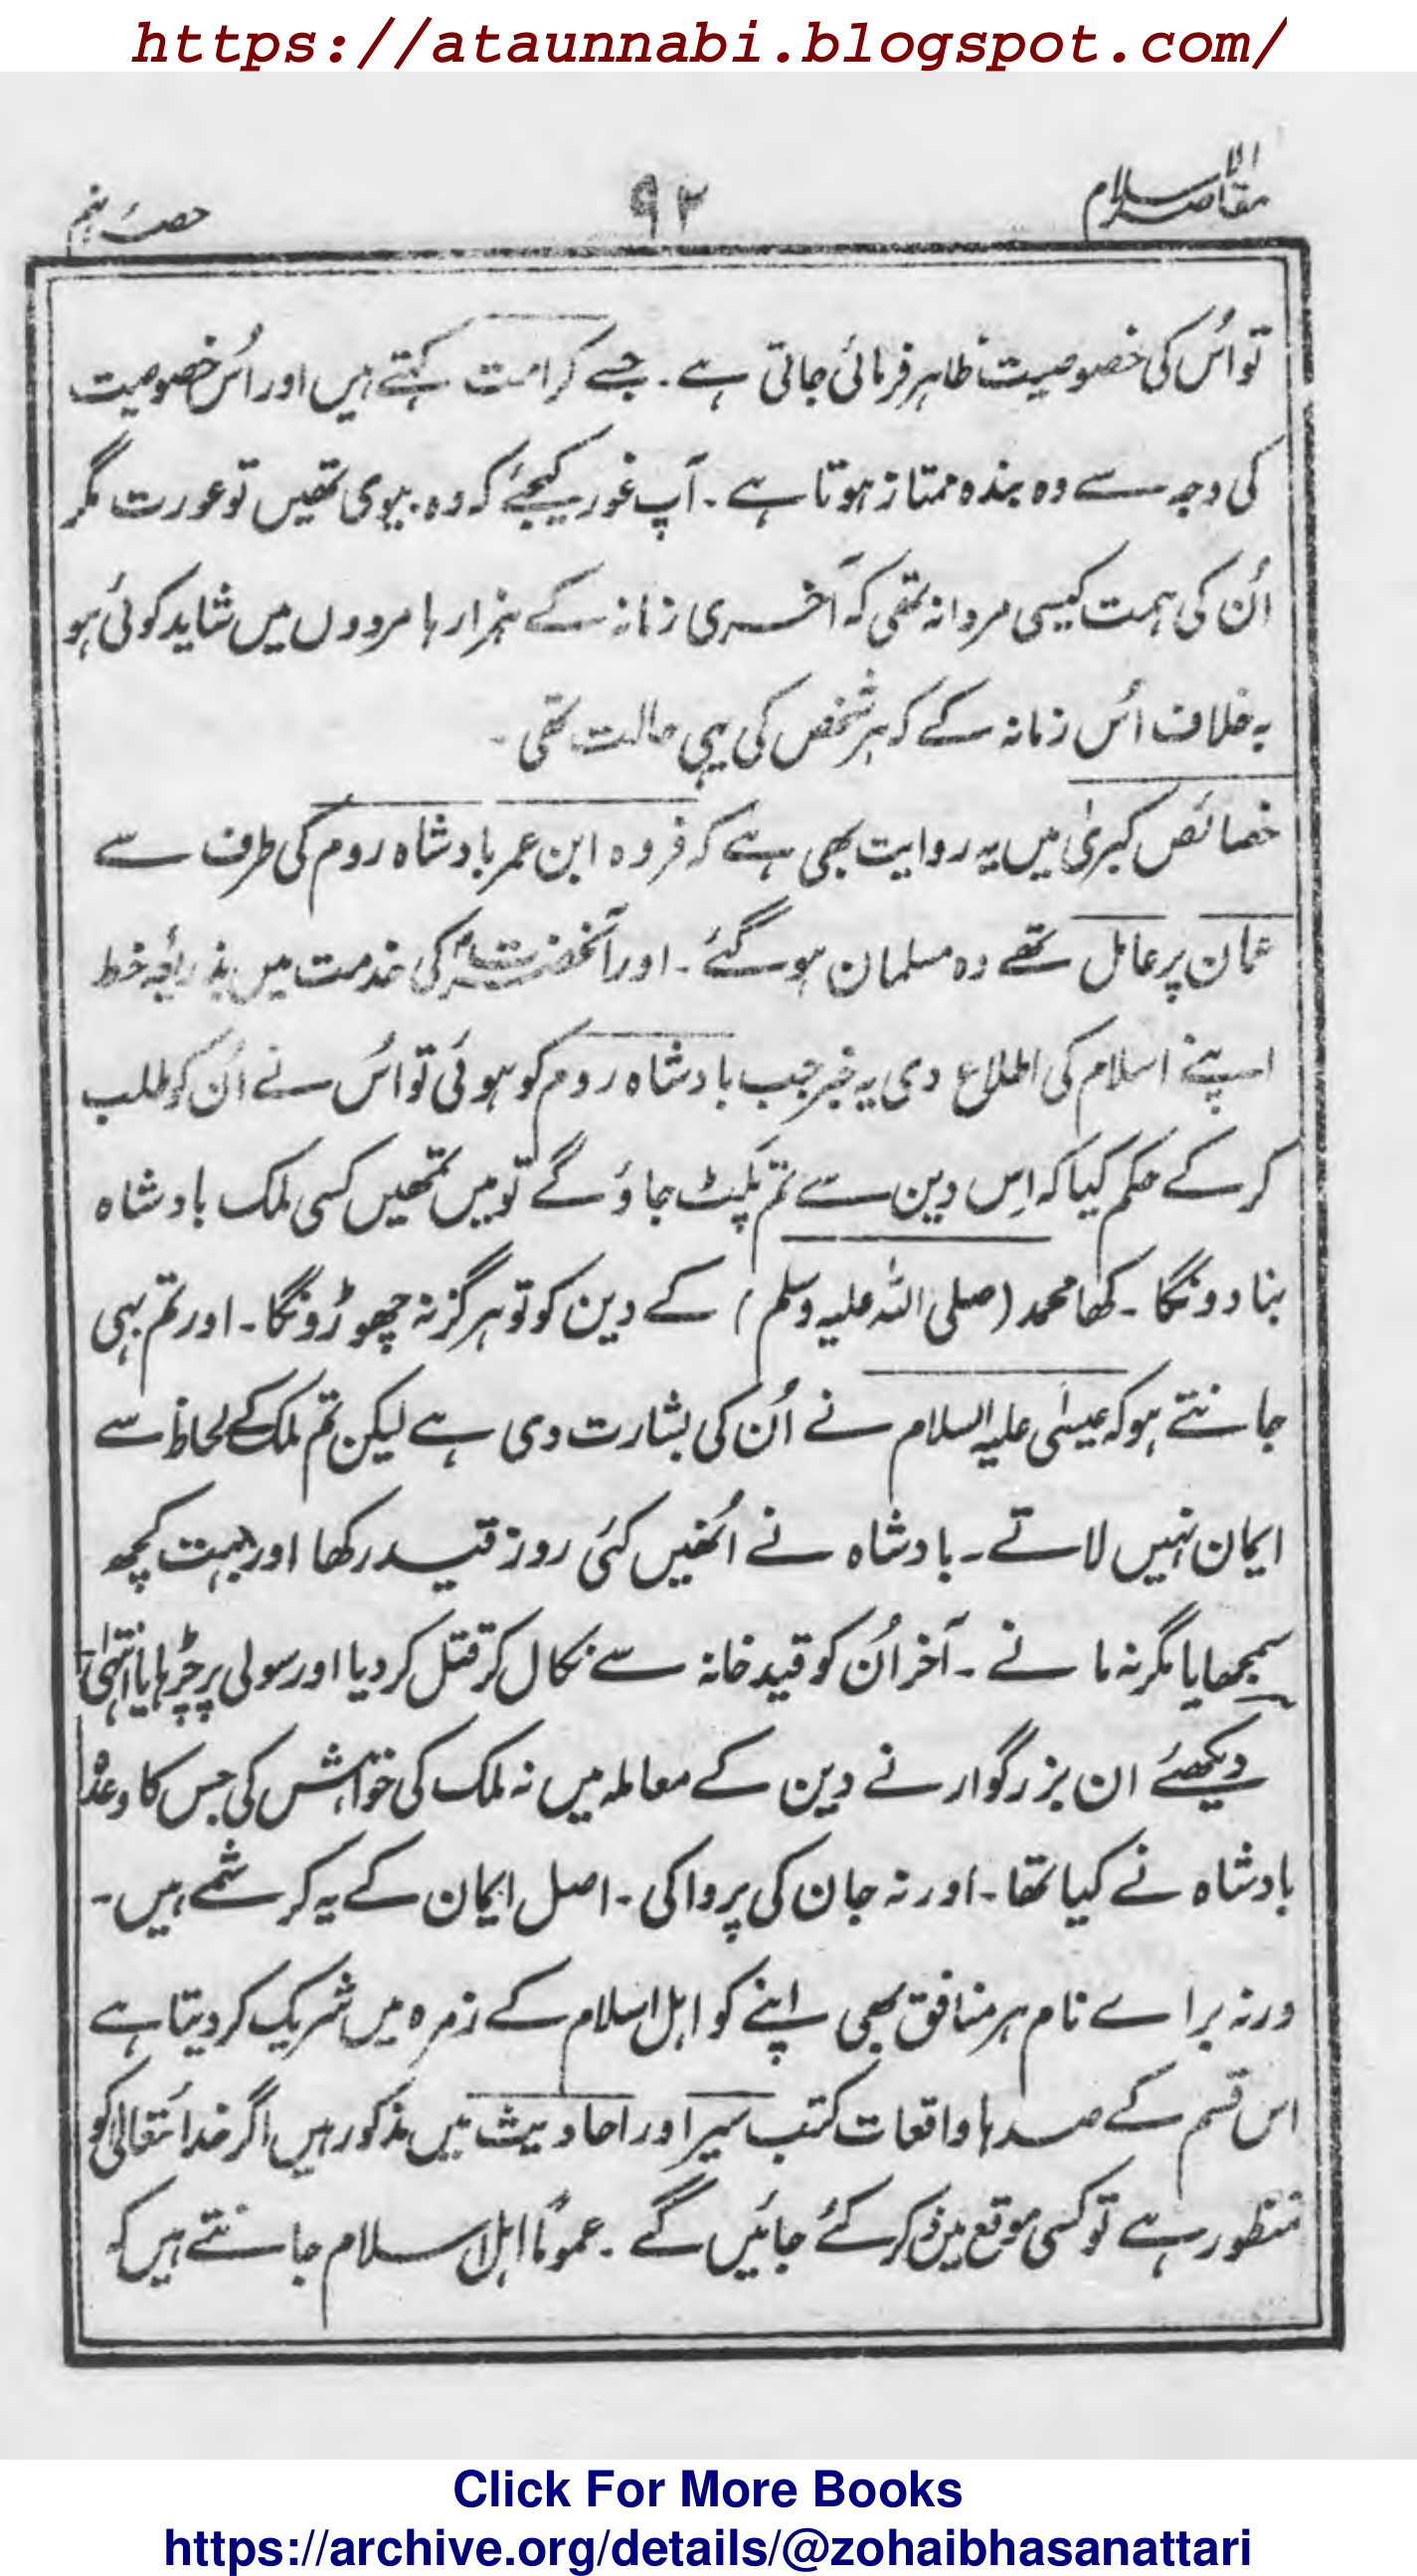 https://ataunnabi.blogspot.com/
مقاصد الاسلام
۹۲
حصۂ نہم
تو اُس کی خصوصیت ظاہر فرمائی جاتی ہے۔ جسے کرامت کہتے ہیں اور اُس خصوصیت
کی وجہ سے وہ بندہ ممتاز ہوتا ہے۔ آپ غور کیجئے کہ وہ بیوی تھیں تو عورت مگر
اُن کی ہمت کیسی مردانہ تھی کہ آخری زمانہ کے ہزارہا مردوں میں شاید کوئی ہو
بہ خلاف اُس زمانہ کے کہ ہر شخص کی یہی حالت تھی۔
خصائص کبریٰ میں یہ روایت بھی ہے کہ فروہ ابن عمر بادشاہ روم کی طرف سے
عمان پر عامل تھے وہ مسلمان ہو گئے۔ اور آنحضرتؐ کی خدمت میں بذریعۂ خط
اپنے اسلام کی اطلاع دی یہ خبر جب بادشاہ روم کو ہوئی تو اُس نے اُن کو طلب
کر کے حکم کیا کہ اِس دین سے تم پلٹ جاؤ گے تو میں تمھیں کسی ملک بادشاہ
بنا دونگا۔ کھا محمد (صلی اللہ علیہ وسلم) کے دین کو تو ہرگز نہ چھوڑونگا۔ اور تم بہی
جانتے ہو کہ عیسٰی علیہ السلام نے اُن کی بشارت دی ہے لیکن تم ملک کے لحاظ سے
ایمان نہیں لاتے۔ بادشاہ نے اُنھیں کئی روز قید رکھا اور بہت کچھ
سمجھایا مگر نہ مانے۔ آخر اُن کو قید خانہ سے نکال کر قتل کر دیا اور سولی پر چڑہایا انتہیٰ
دیکھئے ان بزرگوار نے دین کے معاملہ میں نہ ملک کی خواہش کی جس کا وعدہ
بادشاہ نے کیا تھا۔ اور نہ جان کی پروا کی۔ اصل ایمان کے یہ کرشمے ہیں۔
ورنہ براے نام ہر منافق بھی اپنے کو اہل اسلام کے زمرہ میں شریک کر دیتا ہے
اس قسم کے صدہا واقعات کتب سیر اور احادیث میں مذکور ہیں اگر خدائتعالیٰ کو
منظور ہے تو کسی موقع میں ذکر کئے جائیں گے۔ عموماً اہل اسلام جانتے ہیں کہ
Click For More Books
https://archive.org/details/@zohaibhasanattari